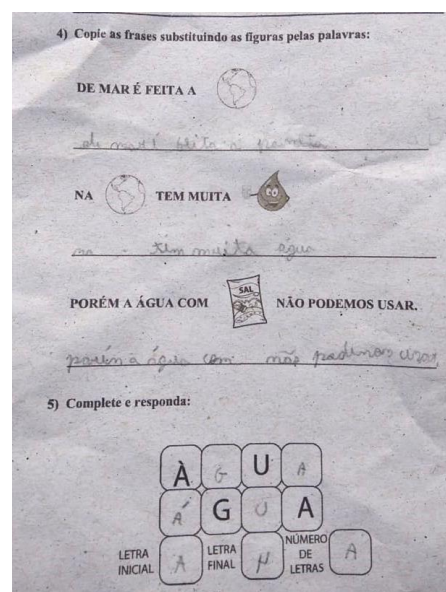 4) Copie as frases substituindo as figuras pelas palavras:
DE MAR É FEITA A
de mar é feita a
NA TEM MUITA
na - tem muita água
PORÉM A ÁGUA COM SAL NÃO PODEMOS USAR.
porém a água com não podemos usar
5) Complete e responda:
À G U A
Á G U A
LETRA INICIAL A LETRA FINAL NÚMERO DE LETRAS A